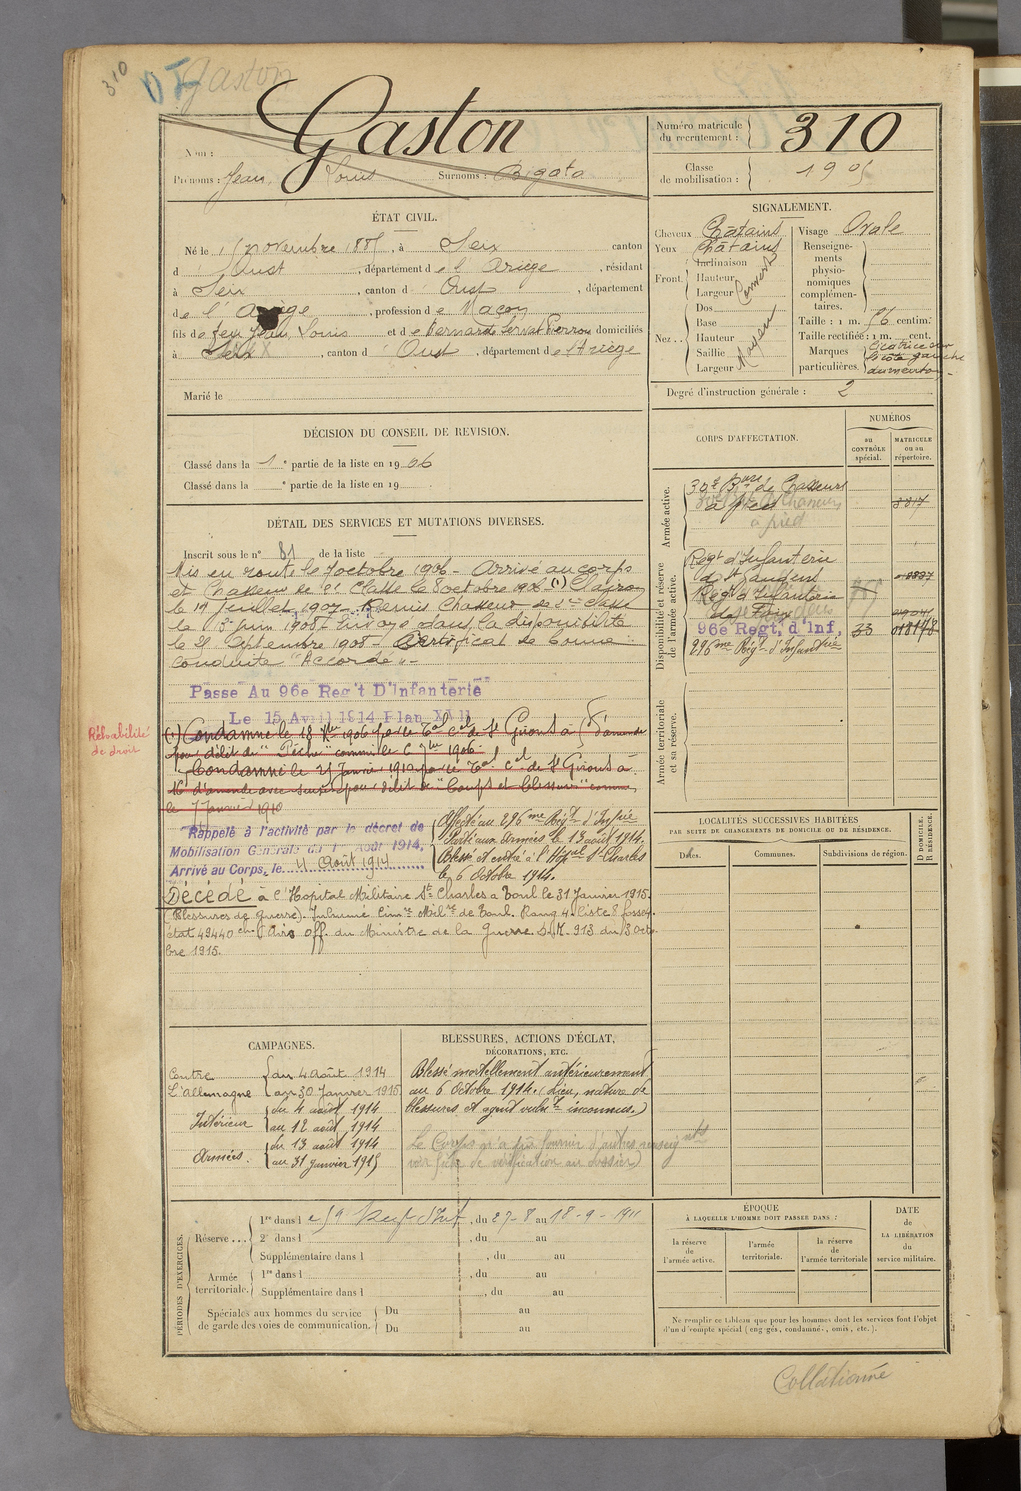 310
Gaston
Nom : Gaston
Prénoms : Jean Louis Surnoms : Bigata
Numéro matricule du recrutement : 310
Classe de mobilisation : 1905
ÉTAT CIVIL.
Né le 15 novembre 1885, à Seix canton
d'Oust, département de l'Ariège, résidant
à Seix, canton d'Oust, département
de l'Ariège, profession de Maçon
fils de feu Jean Louis et de Bernarde Servat Perrou domiciliés
à Seix, canton d'Oust, département de l'Ariège
Marié le
SIGNALEMENT.
Cheveux Châtains
Yeux Châtains
Front. Inclinaison
Hauteur
Largeur
Nez.. Dos
Base
Hauteur
Saillie
Largeur
Moyen
Visage Ovale
Renseignements physionomiques complémentaires.
Taille : 1 m. 56 centim.
Taille rectifiée : 1 m. cent.
Marques particulières. Cicatrice sur
le côté gauche
du menton
Degré d'instruction générale : 2
DÉCISION DU CONSEIL DE REVISION.
Classé dans la 1e partie de la liste en 1906
Classé dans la e partie de la liste en 19
DÉTAIL DES SERVICES ET MUTATIONS DIVERSES.
Inscrit sous le n° 81 de la liste
Mis en route le 7 octobre 1906 - Arrivé au corps
et Chasseur de 2e Classe le 8 octobre 1906 (1) Clairon
le 19 Juillet 1907 - Remis Chasseur de 2e classe
le 3 juin 1908 - Envoyé dans la disponibilité
le 25 Septembre 1908 - Certificat de bonne
conduite "Accordé" -
Passé Au 96e Reg't D'Infanterie
Le 15 Avril 1914 Plan XVII
Réhabilité
de droit
(1) Condamné le 18 Xbre 1906 par le Tal cel de St Girons à d'amende
pour délit de "Pêche" commis le 6 7bre 1906
Condamné le 25 Janvier 1910 par le Tal cel de St Girons à
16f d'amende avec sursis pour délit de "Coups et blessures" commis
le 7 Janvier 1910
Rappelé à l'activité par le décret de
Mobilisation Générale du 1 Août 1914,
Arrivé au Corps, le 4 Août 1914
Affecté au 296me Régt d'Infrie
Parti aux Armées le 13 août 1914.
Blessé et entré à l'Hpal St Charles
le 6 Octobre 1914.
Décédé à l'Hopital Militaire St Charles a Toul le 31 Janvier 1915.
(Blessures de Guerre). Inhumé Cimre Milre de Toul. Rang 4 liste 8 fosse 4.
état 49440 Avis off. du Ministre de la Guerre S.M. 913 du 3 octo-
bre 1915.
CORPS D'AFFECTATION.
NUMÉROS
au CONTRÔLE spécial.
MATRICULE ou au répertoire.
Armée active.
30e Bon de Chasseurs
à pied 3817
Disponibilité et réserve de l'armée active.
Regt d'Infanterie
de St Gaudens
Regt d'Infanterie
de Foix
96e Regt, d'Inf, 33 018178
296me Régt d'Infanterie
Armée territoriale et sa réserve.
LOCALITÉS SUCCESSIVES HABITÉES
PAR SUITE DE CHANGEMENTS DE DOMICILE OU DE RÉSIDENCE.
Dates. Communes. Subdivisions de région. D DOMICILE. R RÉSIDENCE.
CAMPAGNES.
Contre
L'allemagne
du 4 août 1914
au 30 Janvier 1915
Intérieur
du 4 août 1914
au 12 août 1914
Armées.
du 13 août 1914
au 31 janvier 1915
BLESSURES, ACTIONS D'ÉCLAT,
DÉCORATIONS, ETC.
Blessé mortellement antérieurement
au 6 Octobre 1914. (Lieu, nature de
blessures et agent vulnt inconnus.)
Le Corps n'a pu fournir d'autres renseignts
voir fiche de vérification au dossier)
PÉRIODES D'EXERCICES.
Réserve... 1re dans le 59 Regt d'Inf, du 27-8 au 18-9-1911
2e dans l , du au
Supplémentaire dans l , du au
Armée territoriale. 1re dans l , du au
Supplémentaire dans l , du au
Spéciales aux hommes du service de garde des voies de communication. Du au
Du au
ÉPOQUE
À LAQUELLE L'HOMME DOIT PASSER DANS :
la réserve de l'armée active.
l'armée territoriale.
la réserve de l'armée territoriale
DATE de LA LIBÉRATION du service militaire.
Ne remplir ce tableau que pour les hommes dont les services font l'objet
d'un décompte spécial (engagés, condamnés, omis, etc.).
Collationné